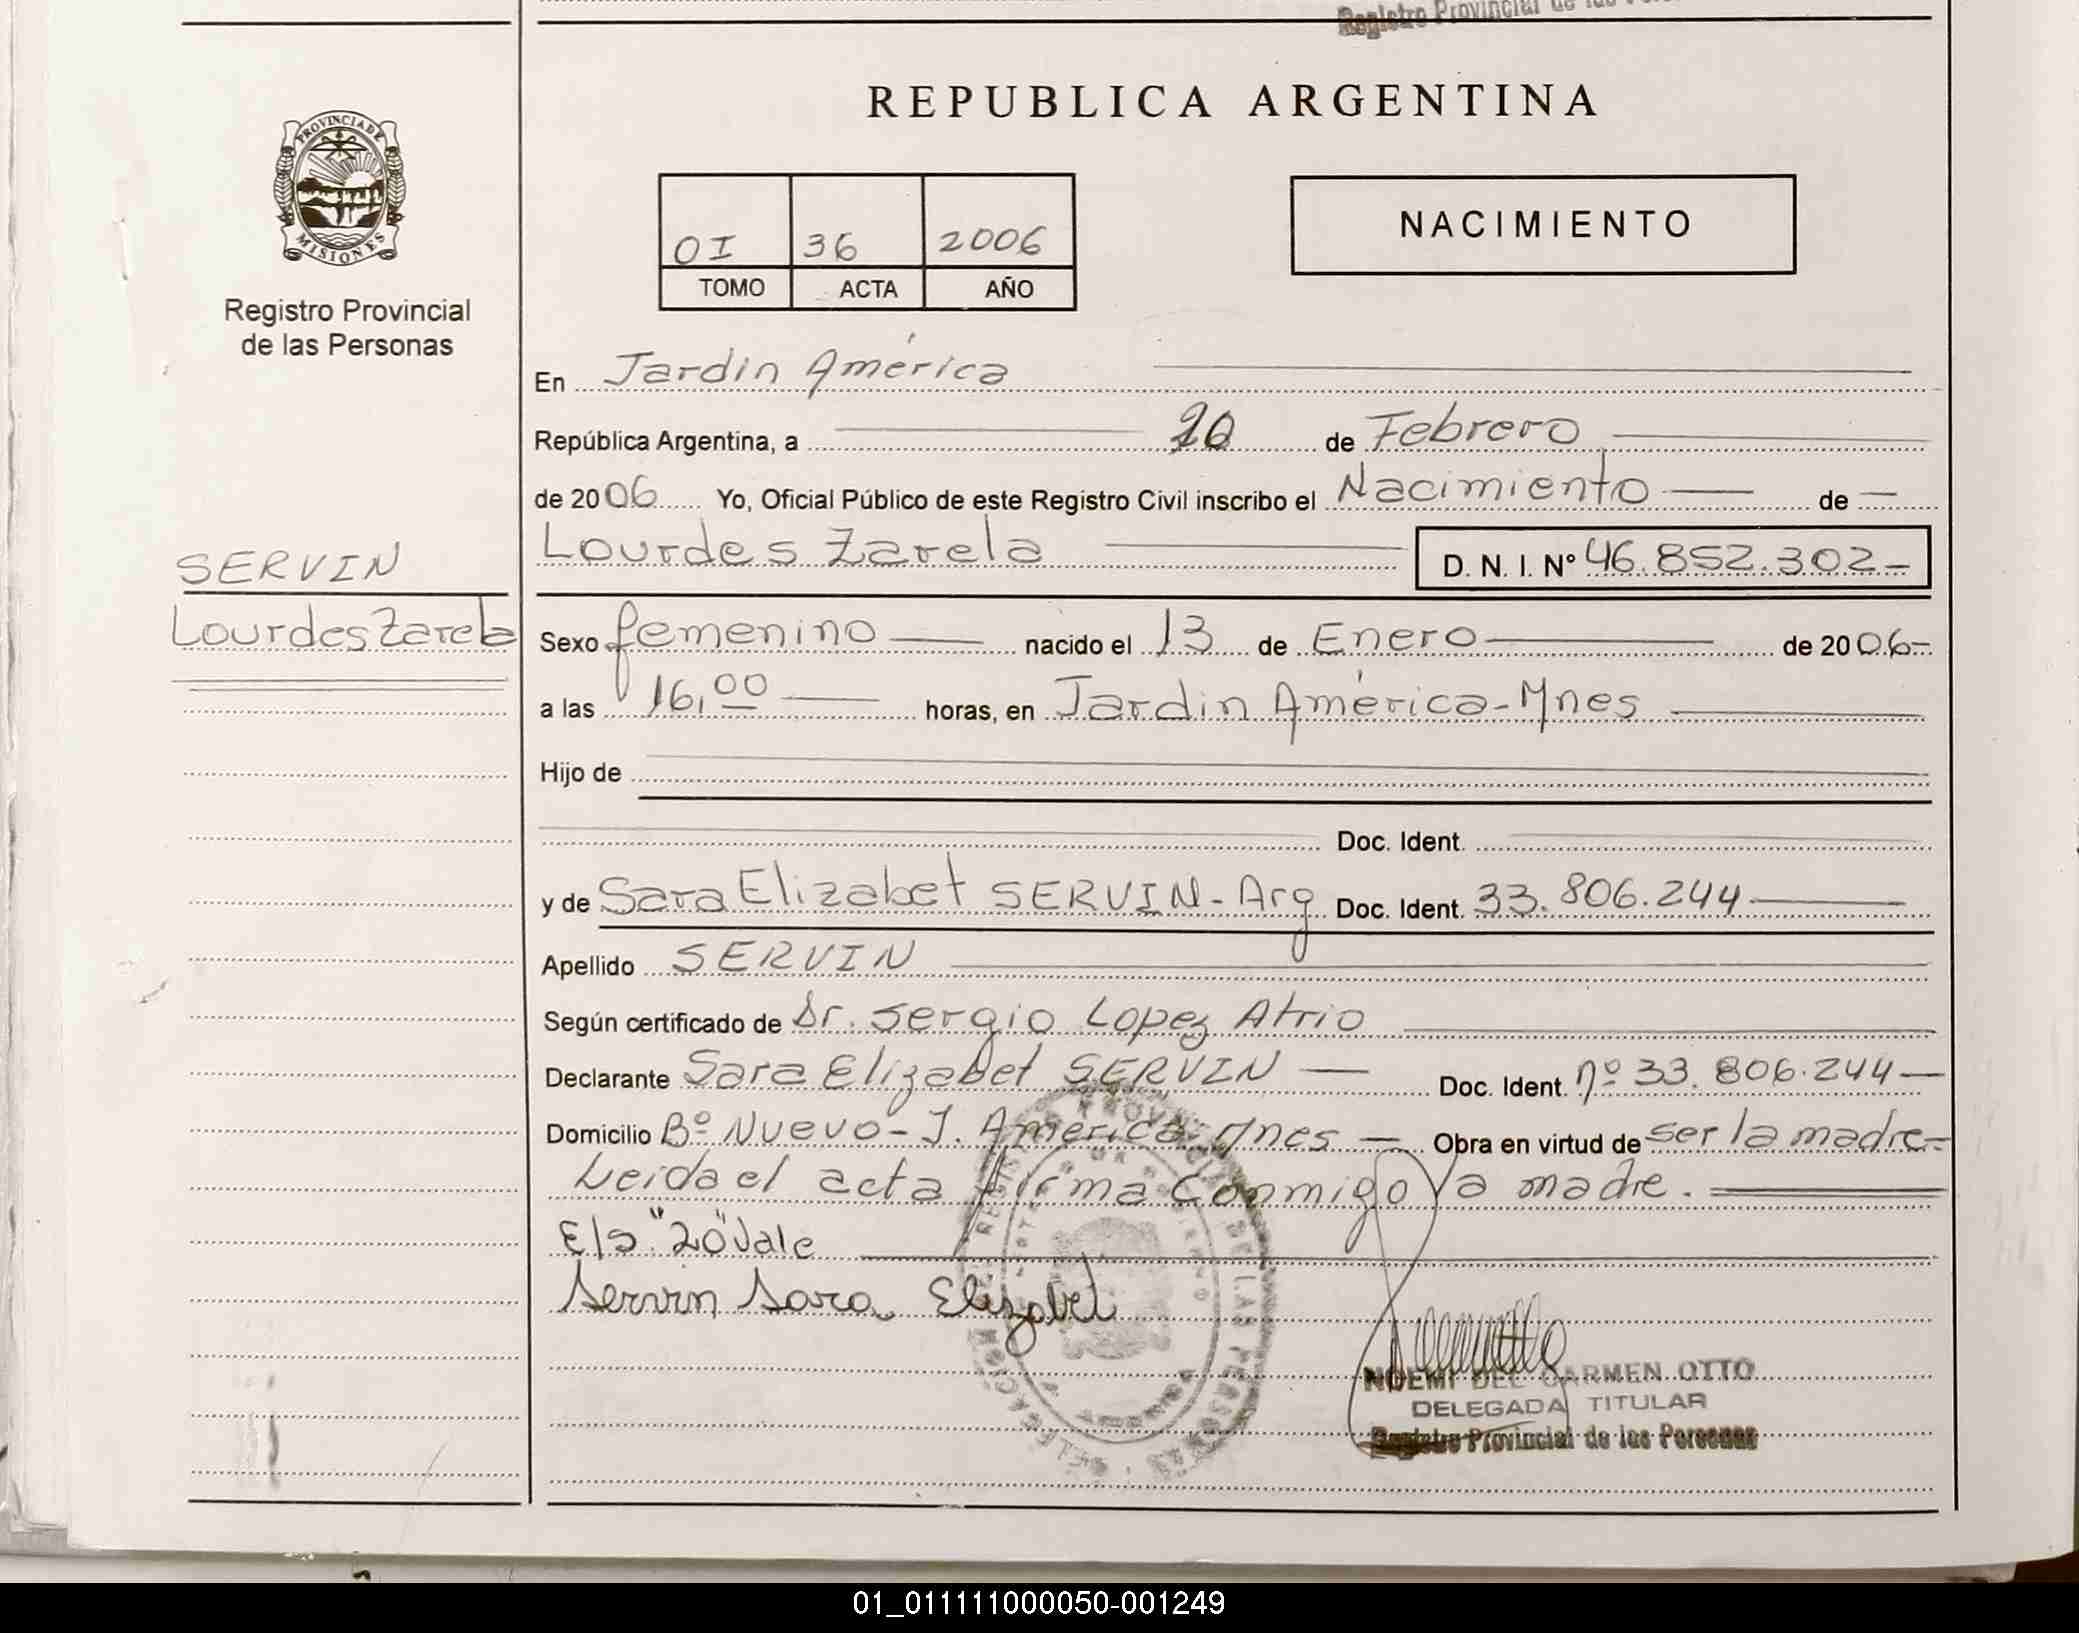 Registro Provincial de las
REPUBLICA ARGENTINA
PROVINCIA DE
MISIONES
Registro Provincial
de las Personas
OI 36 2006
TOMO ACTA AÑO
NACIMIENTO
En Jardín América
República Argentina, a 20 de Febrero
de 2006 Yo, Oficial Público de este Registro Civil inscribo el Nacimiento de
Lourdes Zarela D. N. I. Nº 46.852.302-
SERVIN
Lourdes Zarela
Sexo femenino nacido el 13 de Enero de 2006-
a las 16,00 horas, en Jardín América-Mnes
Hijo de
Doc. Ident.
y de Sara Elizabet SERVIN-Arg Doc. Ident. 33.806.244
Apellido SERVIN
Según certificado de Dr. Sergio Lopez Atrio
Declarante Sara Elizabet SERVIN Doc. Ident. nº 33.806.244
Domicilio Bº Nuevo-J. América-Mnes Obra en virtud de ser la madre-
Leida el acta firma conmigo la madre.
E/s "20" Vale
Servin Sara Elizabet
NOEMI DEL CARMEN OTTO
DELEGADA TITULAR
Registro Provincial de las Personas
01_011111000050-001249